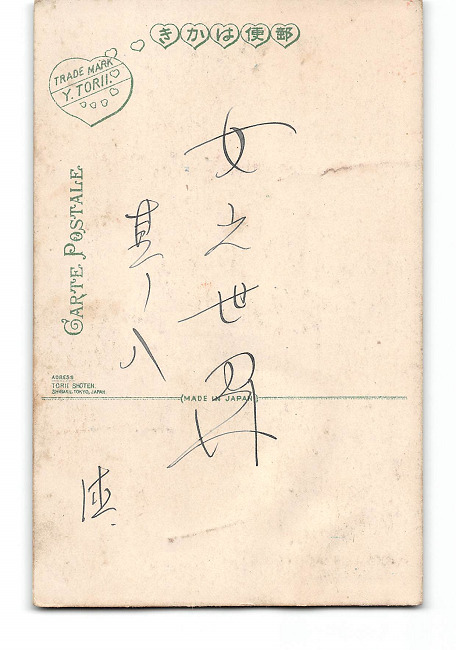 きかは便郵
TRADE MARK
Y. TORII.
女之世界
其ノ八
CARTE POSTALE.
ADRESS
TORII SHOTEN.
SHIBAKU, TOKYO, JAPAN.
(MADE IN JAPAN)